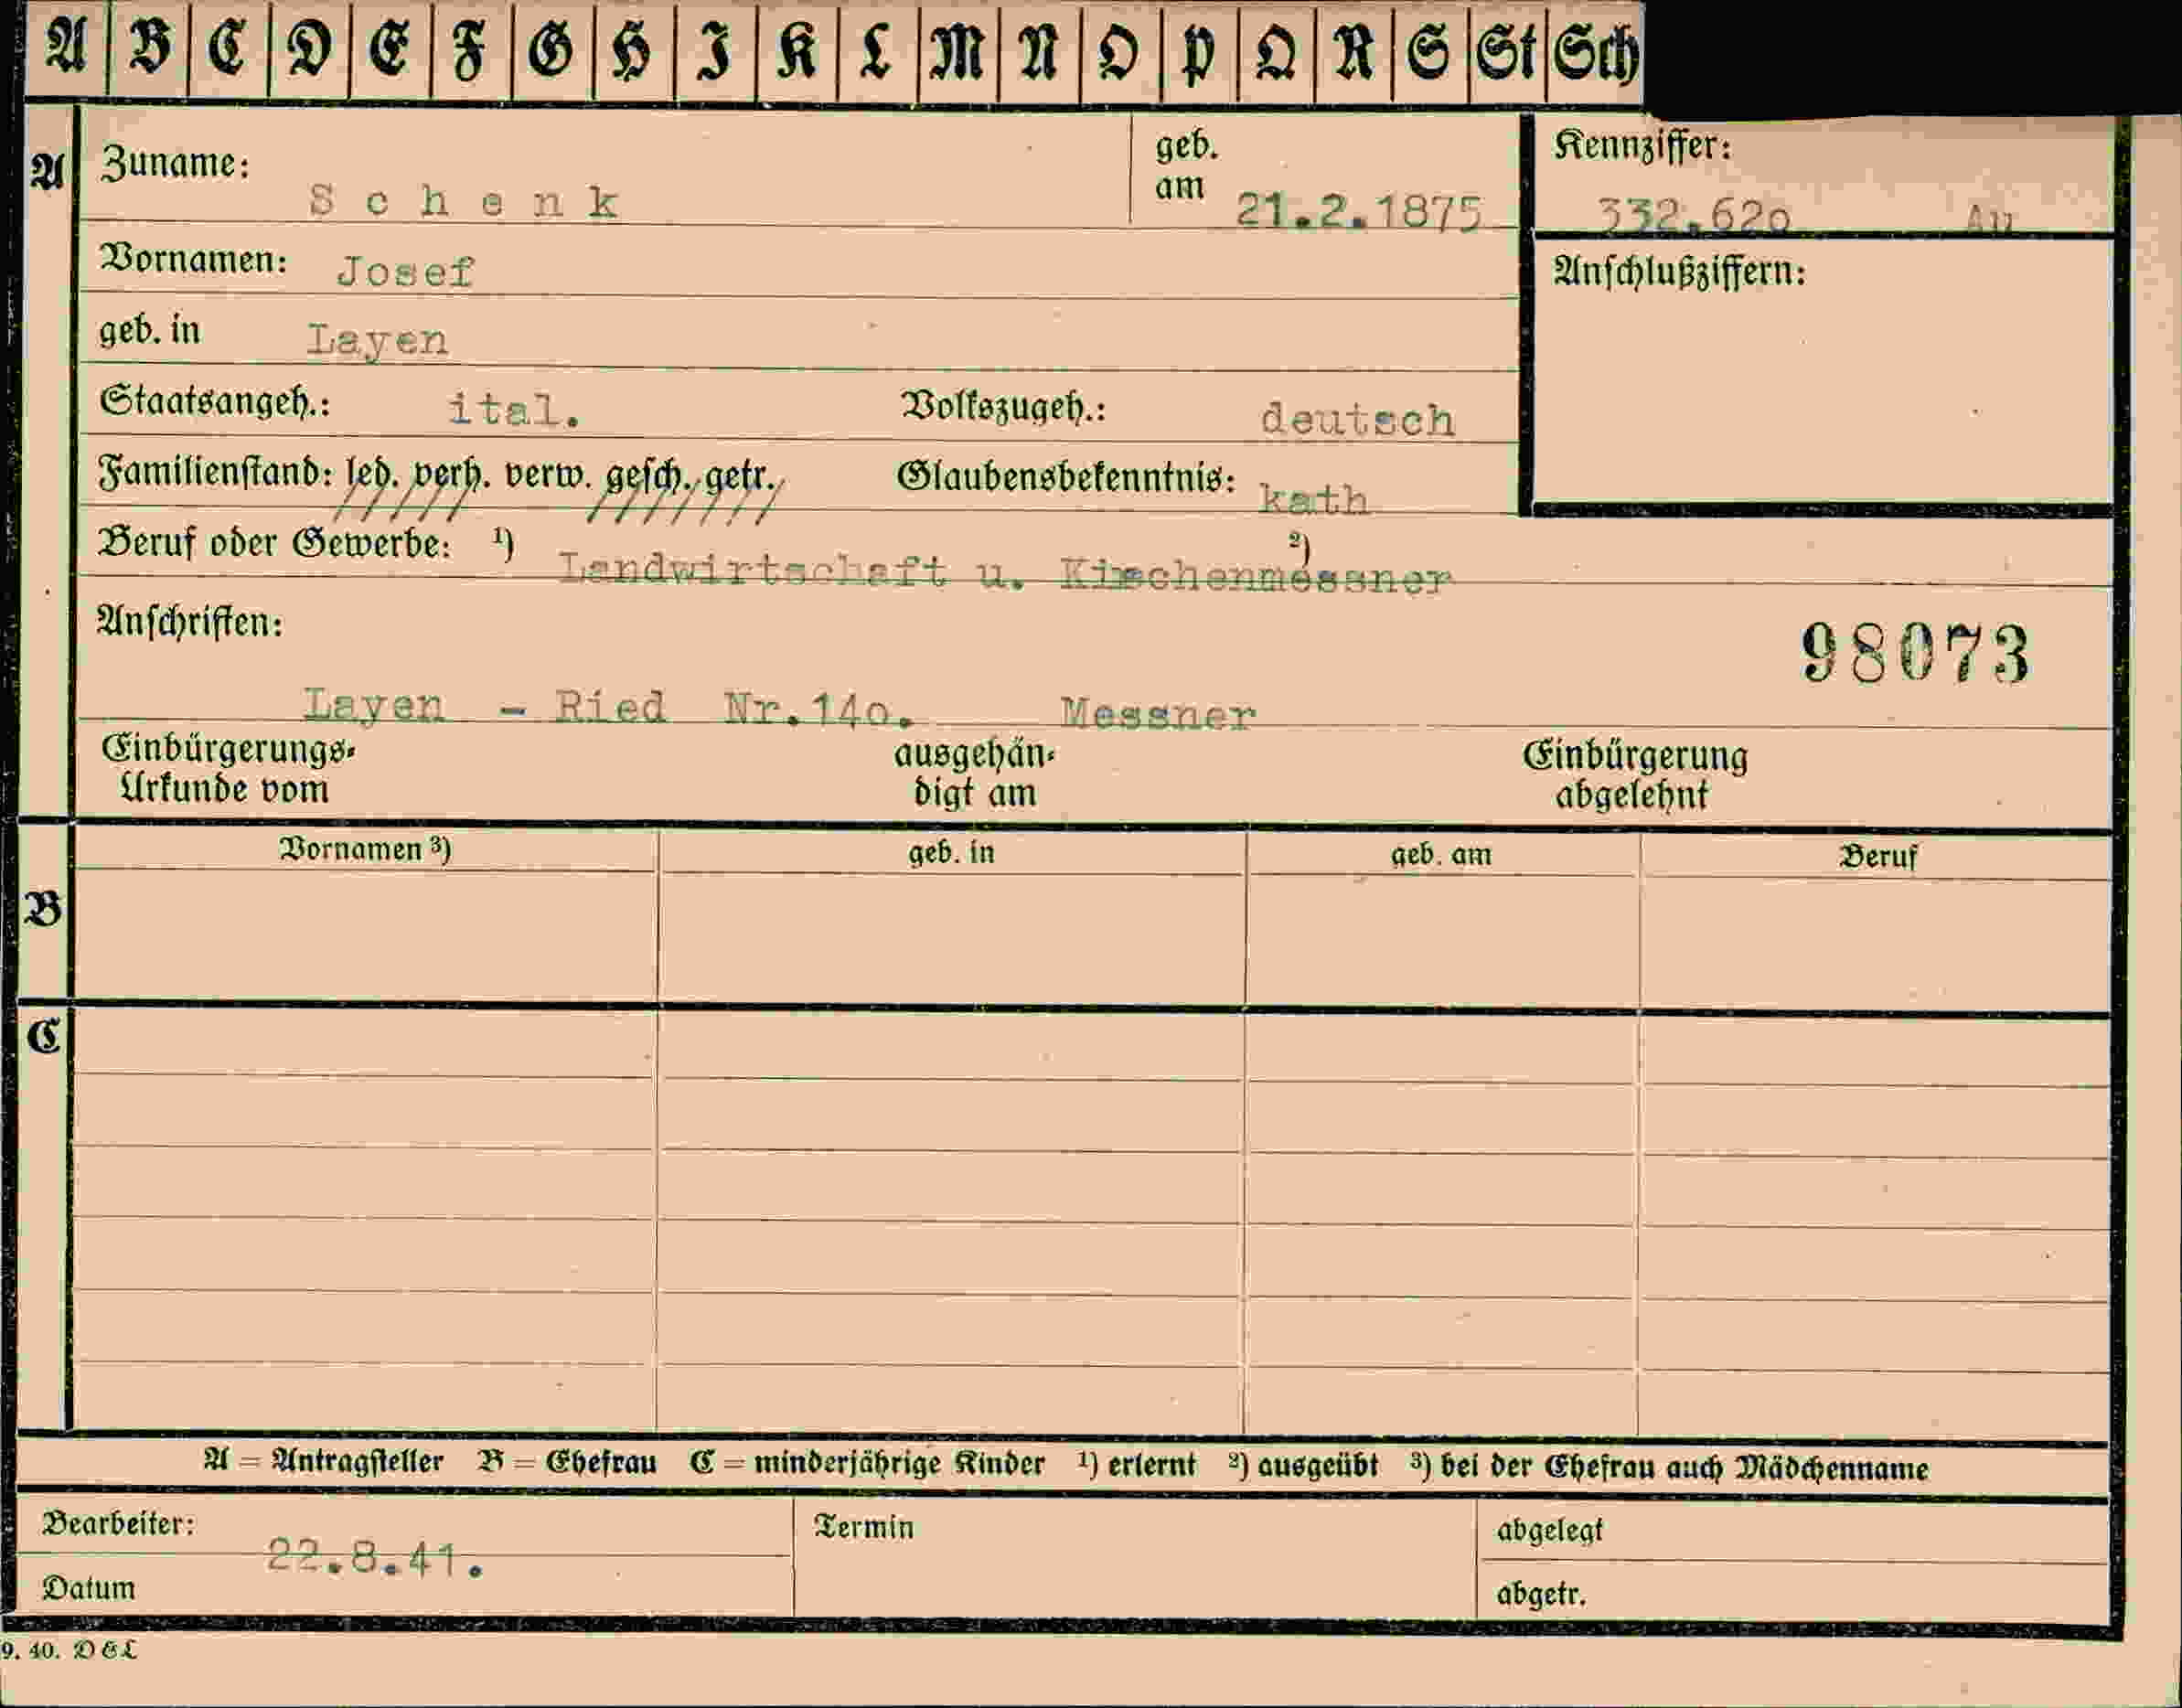 A B C D E F G H I K L M N O P Q R S St Sch
A Zuname: Schenk geb. am 21.2.1875 Kennziffer: 332.62o Au
Vornamen: Josef Anschlußziffern:
geb. in Layen
Staatsangeh.: ital. Volkszugeh.: deutsch
Familienstand: led. verh. verw. gesch. getr. Glaubensbekenntnis: kath
Beruf oder Gewerbe: ¹) Landwirtschaft u. Kirchenmessner ²)
Anschriften: 98073
Layen - Ried Nr.14o. Messner
Einbürgerungs- ausgehän- Einbürgerung
Urkunde vom digt am abgelehnt
Vornamen ³) geb. in geb. am Beruf
B
C
A = Antragsteller B = Ehefrau C = minderjährige Kinder ¹) erlernt ²) ausgeübt ³) bei der Ehefrau auch Mädchenname
Bearbeiter: Termin abgelegt
22.8.41.
Datum abgetr.
9. 40. D